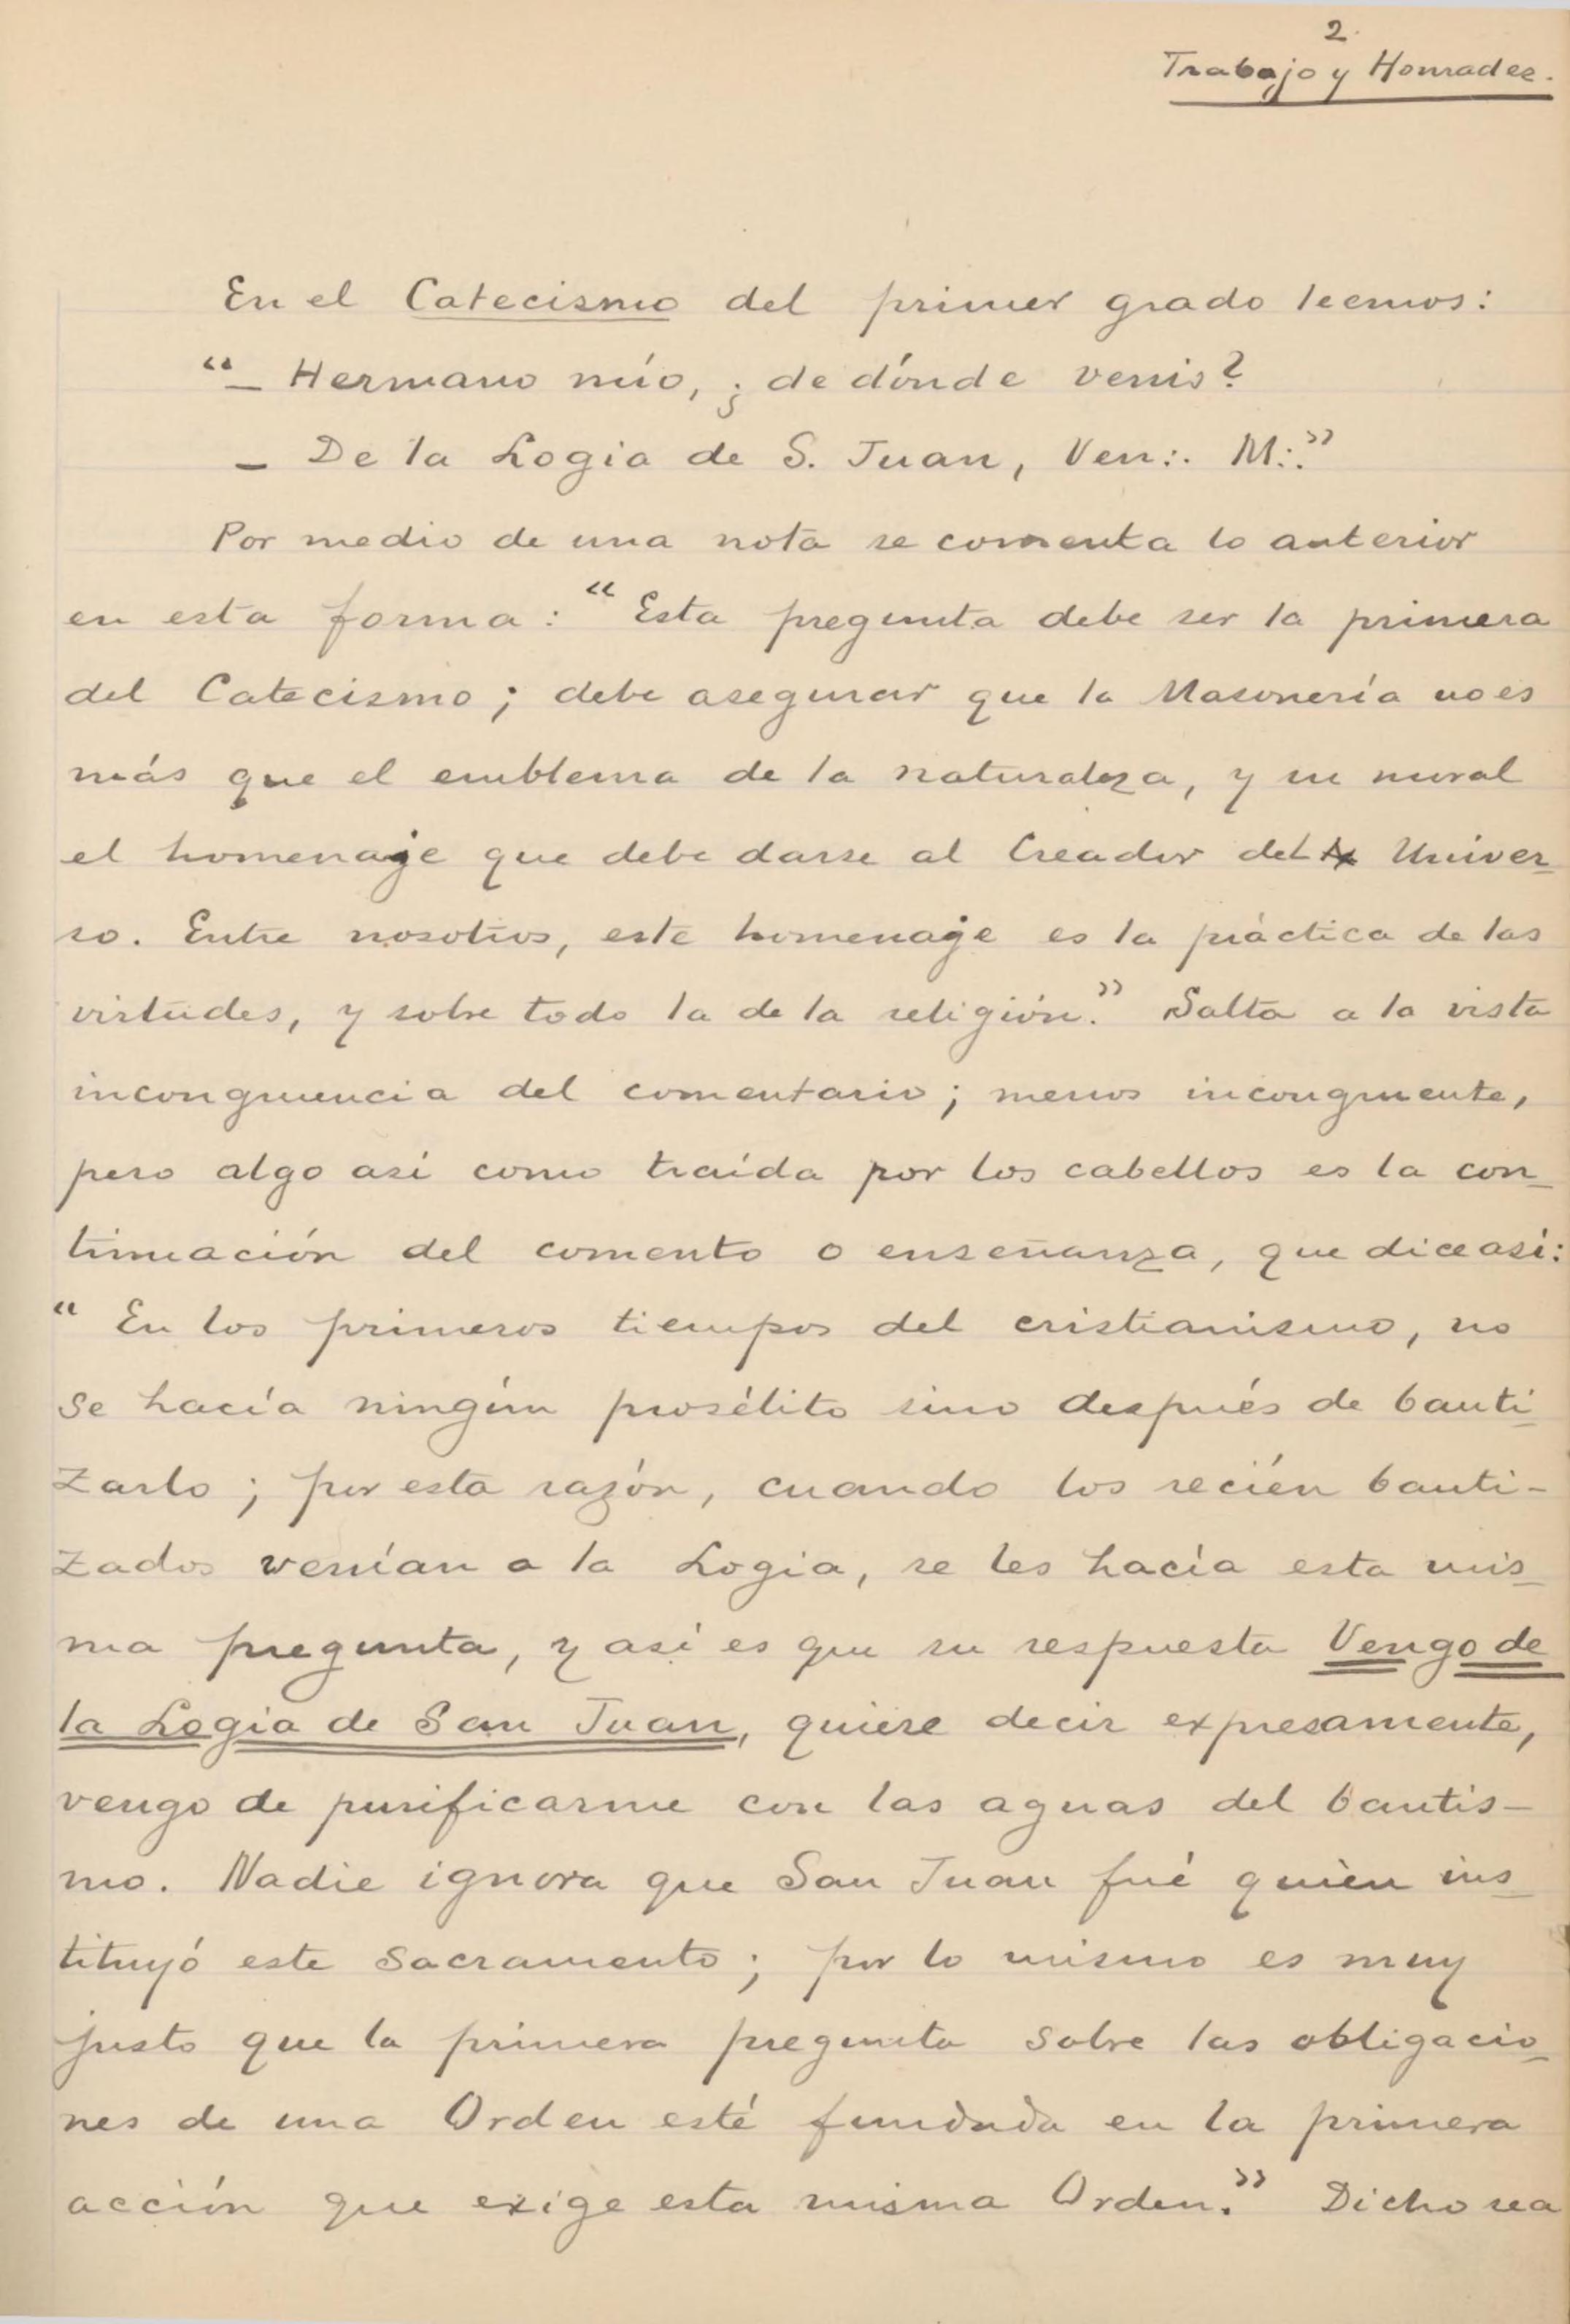 2.
Trabajo y Honradez.
En el Catecismo del primer grado leemos:
“— Hermano mío, ¿de dónde venis?
— De la Logia de S. Juan, Ven∴ M∴”
Por medio de una nota se comenta lo anterior
en esta forma: “Esta pregunta debe ser la primera
del Catecismo; debe asegurar que la Masonería no es
más que el emblema de la naturaleza, y su moral
el homenaje que debe darse al Creador del Univer-
so. Entre nosotros, este homenaje es la práctica de las
virtudes, y sobre todo la de la religión.” Salta a la vista
incongruencia del comentario; menos incongruente,
pero algo así como traída por los cabellos es la con-
tinuación del comento o enseñanza, que dice asi:
“En los primeros tiempos del cristianismo, no
se hacía ningún prosélito sino después de bauti-
zarlo; por esta razón, cuando los recién bauti-
zados venían a la Logia, se les hacía esta mis-
ma pregunta, y así es que su respuesta Vengo de
la Logia de San Juan, quiere decir expresamente,
vengo de purificarme con las aguas del bautis-
mo. Nadie ignora que San Juan fué quien ins-
tituyó este sacramento; por lo mismo es muy
justo que la primera pregunta sobre las obligacio-
nes de una Orden esté fundada en la primera
acción que exige esta misma Orden.” Dicho sea